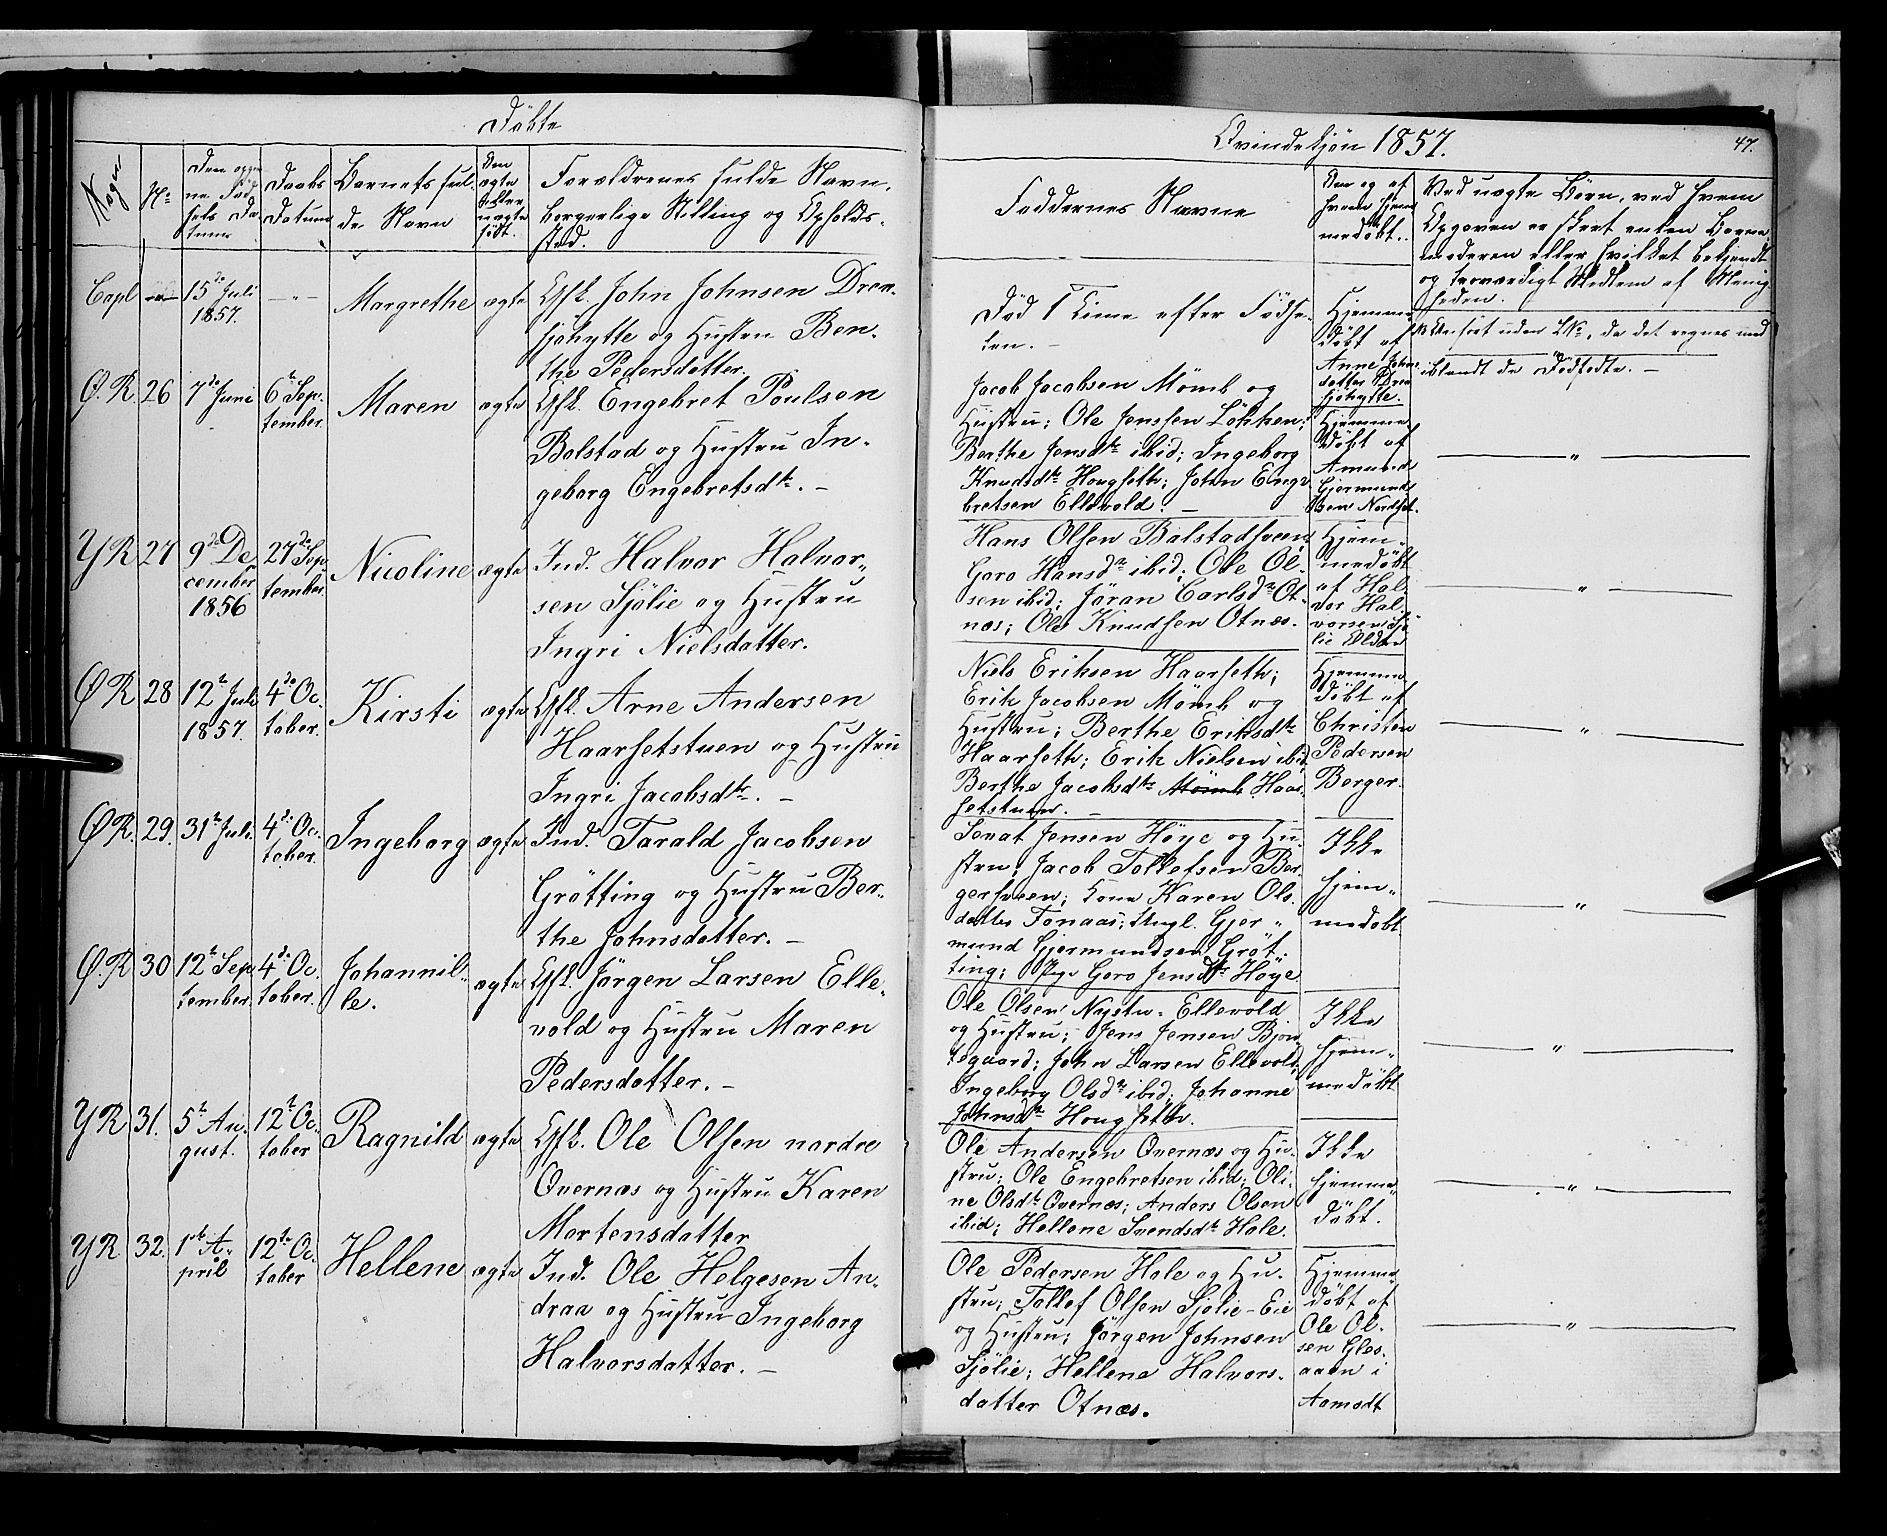 Döbte
Qvindekjön 1857.
47.
Sogn
No
Den opgiv-
ne Föd-
sels Da-
tum
Daabs
Datum
Barnets ful-
de Navn
Om
ægte
eller
uægte
födt.
Forældrenes fulde Navn,
borgerlige Stilling og Opholds-
sted.
Faddernes Navne
Om og af
hvem hjem-
medöbt.
Ved uægte Börn, ved hvem
Opgaven er skeet enten Barne-
moderen eller hvilket bekjendt
og troværdigt Medlem af Menig-
heden.
Capl
15de Juli
1857.
-"-
Margrethe
ægte
Gfk. John Johnsen Drev-
sjöhytte og Hustru Ben-
the Pedersdatter.
Död 1 Time efter Födse-
len. -
Hjemme-
döbt af
Anne Johns-
datter Drev-
sjöhytte.
NB Anfört uden LNo, da det regnes med
iblandt de Dödfödte. -
Ø.R.
26
7de Juni
6te Sep-
tember.
Maren
ægte
Gfk. Engebret Poulsen
Bolstad og Hustru In-
geborg Engebretsdtr. -
Jacob Jacobsen Mømb og
Hustru; Ole Jensen Lökken;
Berthe Jensdtr ibid; Ingeborg
Knudsdtr Hougseth; John Enge-
bretsen Ellevold. -
Hjemme-
döbt af
Amund
Gjermund-
sen Nordset.
"
YR
27
9de De-
cember
1856
27de Sep-
tember
Nicoline
ægte
Ind. Halvor Halvor-
sen Sjölie og Hustru
Ingri Nielsdatter.
Hans Olsen Bolstadsveen;
Goro Hansdtr ibid; Ole Ol-
sen ibid; Jöran Carlsdtr Ot-
næs; Ole Knudsen Otnæs.
Hjem-
medöbt
af Hal-
vor Hal-
vorsen Sjö-
lie
"
ØR
28
12te Juli
1857.
4de Oc-
tober.
Kirsti
ægte
Gfk. Arne Andersen
Haarsetstuen og Hustru
Ingri Jacobsdtr. -
Niels Eriksen Haarseth;
Erik Jacobsen Mømb og
Hustru; Berthe Eriksdtr
Haarseth; Erik Nielsen ibid
Berthe Jacobsdtr Mømb Haar-
setstuen. -
Hjemme-
döbt af
Christen
Pedersen
Berger.
"
ØR.
29.
31te Juli
4de Oc-
tober.
Ingeborg
ægte
Ind. Tarald Jacobsen
Grötting og Hustru Ber-
the Johnsdatter. -
Senat Jensen Höye og Hu-
stru; Jacob Tollefsen Ber-
gersveen; Kone Karen Ols-
datter Fonaas; Ungk. Gjer-
mund Gjermundsen Gröt-
ting; Pige Goro Jensdtr Höye
Ikke
hjem-
medöbt
"
Ø.R
30
12te Sep-
tember.
4de Oc-
tober.
Johannil-
le.
ægte
Gfk. Jörgen Larsen Elle-
vold og Hustru Maren
Pedersdatter. -
Ole Olsen Nystu-Ellevold
og Hustru; Jens Jensen Bjön-
tegaard; John Larsen Ellevold
Ingeborg Olsdtr ibid; Johanne
Johnsdtr Hougseth.
Ikke
hjem-
medöbt
"
YR
31.
5te Au-
gust.
12te Oc-
tober
Ragnild
ægte
Gfk. Ole Olsen nordre
Qvernæs og Hustru Karen
Mortensdatter
Ole Andersen Qvernæs og Hu-
stru; Ole Engebretsen ibid; Oli-
ne Olsdtr Qvernæs; Anders Olsen
ibid; Hellene Svendsdtr Hole.
Ikke
hjemme-
döbt.
"
YR.
32.
1ste A-
pril
12te Oc-
tober
Hellene
ægte
Ind. Ole Helgesen An-
draa og Hustru Ingeborg
Halvorsdatter. -
Ole Pedersen Hole og Hu-
stru; Tollef Olsen Sjölie-Eie
og Hustru; Jörgen Johnsen
Sjölie; Hellene Halvors-
datter Otnæs.
Hjemme-
döbt af
Ole Ol-
sen Glös-
aaen i
Aamodt
"